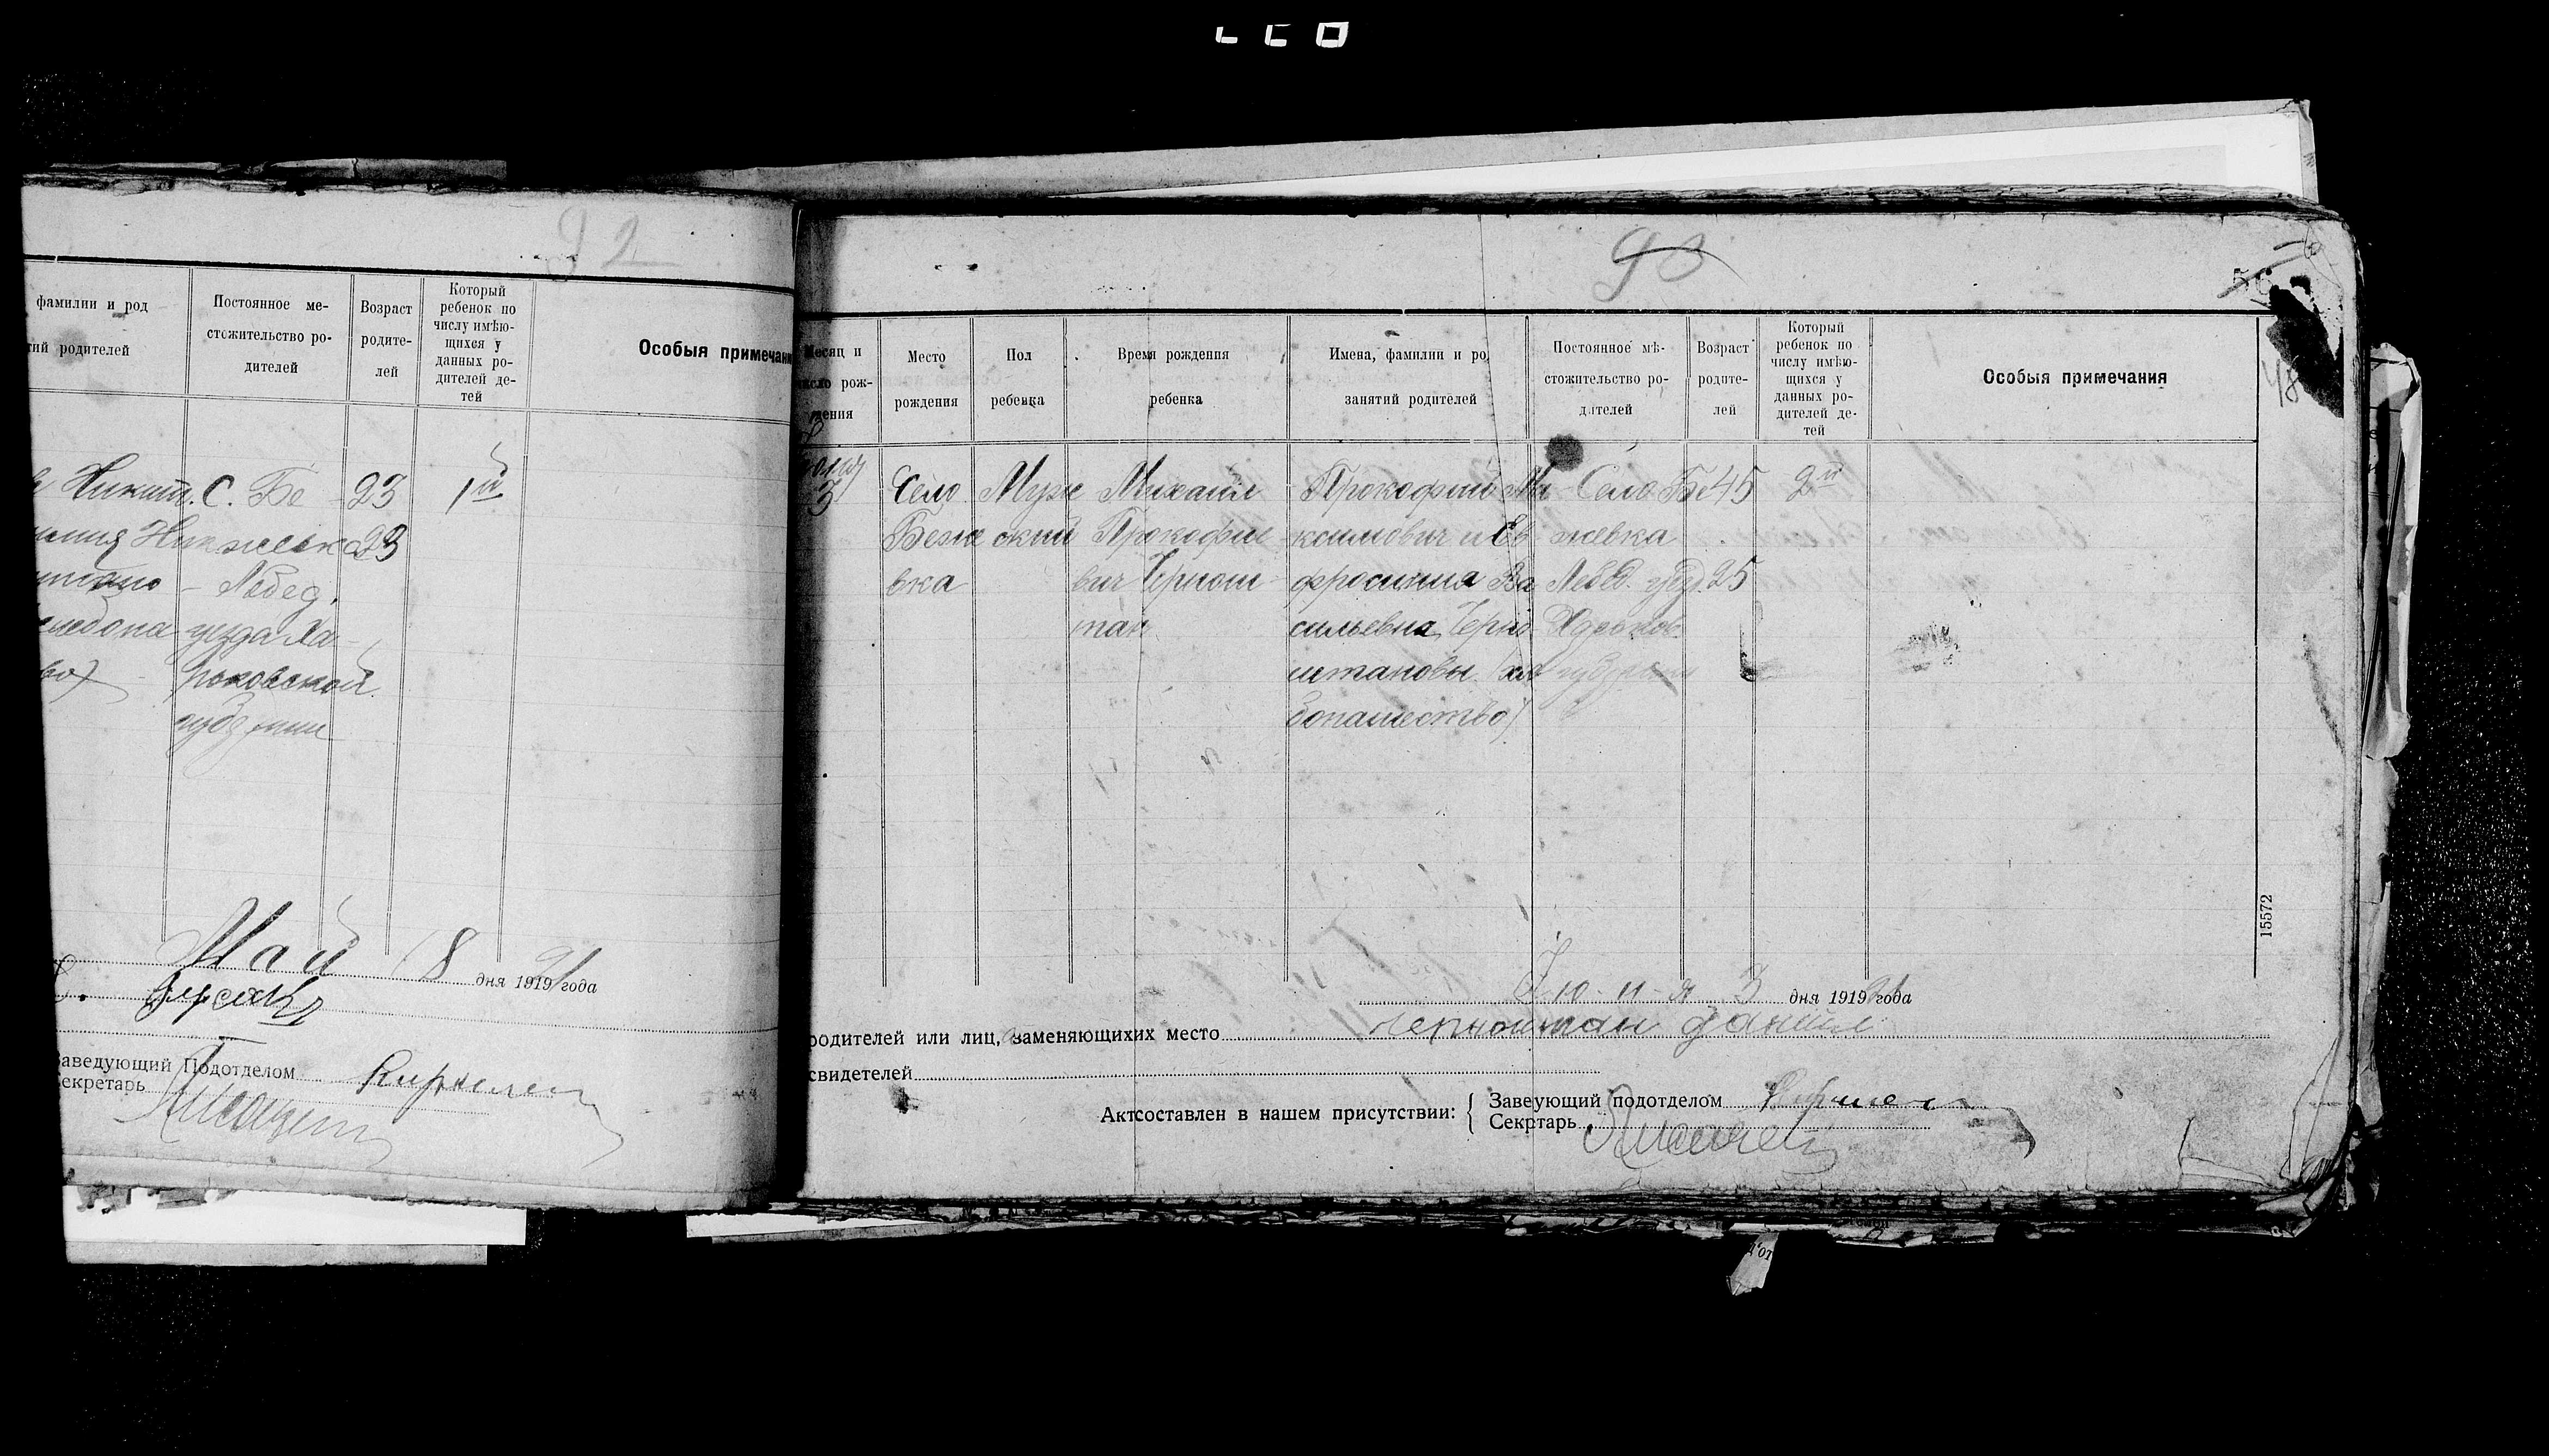 92
фамилии и род
тий родителей
Постоянное ме-
стожительство ро-
дителей
Возраст
родите-
лей
Который
ребенок по
числу имѣю-
щихся у
данных ро-
дителей де-
тей
Особыя примечани
Никит.
С. Бе
23
1й
23
Лебед.
уезда Ха-
рьковской
губернии
Май 18 дня 1919 21 года
Заведующий Подотделом
Секретарь
93
56
48
Месяц и
число рож-
дения
Место
рождения
Пол
ребенка
Время рождения
ребенка
Имена, фамилии и ро
занятий родителей
Постоянное мѣ-
стожительство ро-
дителей
Возраст
родите-
лей
Который
ребенок по
числу имѣю-
щихся у
данных ро-
дителей де-
тей
Особыя примечания
3
Село
Беже
вка
Муж
ский
Михаил
Прокофие
вич Чернош
тан
Прокофий Ма
ксимович и Ев
фросиния Ва
сильевна Черно
штановы (хле
бопашество)
Село Бе
жевка
Лебед. уезд.
Харьков.
губернии
45
25
2й
15572
Июня 3 дня 1919 21 года
родителей или лиц, заменяющихих место Черноштан Данил
свидетелей
Актсоставлен в нашем присутствии:
Завеующий подотделом
Секртарь